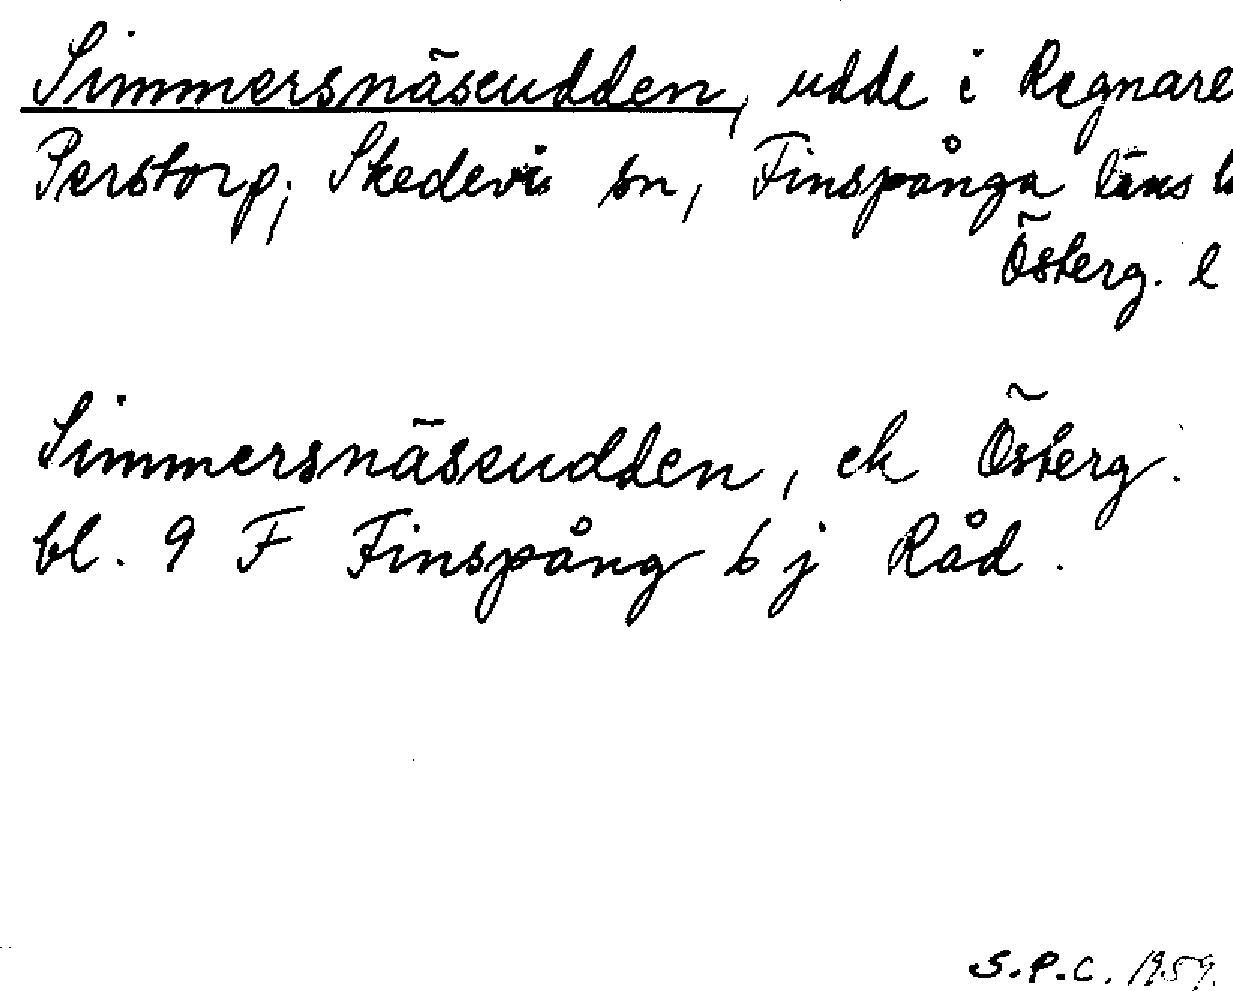 Simmersnäseudden, udde i Regnare
Perstorp, Skedevis sn, Finspånga läns
Österg. l
Simmersnäseudden, ek Österg.
bl. 9 F Finspång 6 j Råd.
S.P.C. 1959.